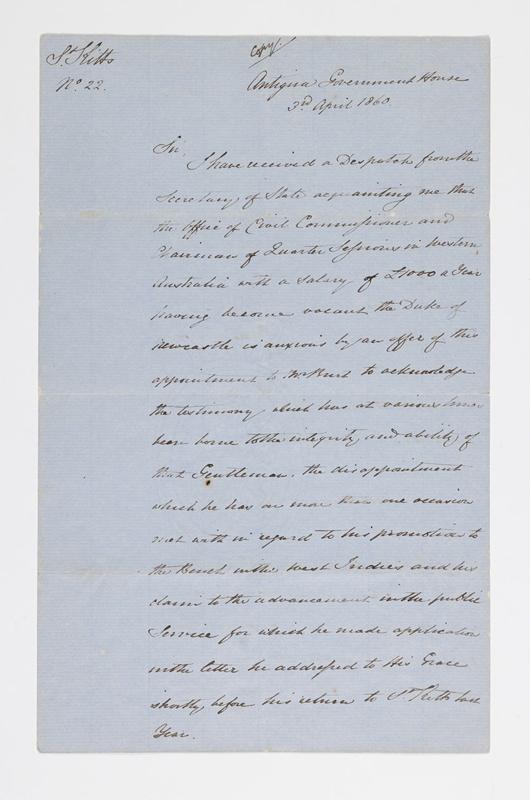 St Kitts
No. 22.
Copy/.
Antigua Government House
3rd April 1860.
Sir,
I have received a Despatch from the
Secretary of State acquainting me that
the Office of Civil Commissioner and
Chairman of Quarter Sessions in Western
Australia with a Salary of £1000 a Year
having become vacant the Duke of
Newcastle is anxious by an offer of this
appointment to Mr Burt to acknowledge
the testimony which has at various times
been borne to the integrity and ability of
that Gentleman. the disappointment
which he has on more than one occasion
met with in regard to his promotion to
the Bench in the West Indies and his
claim to the advancement in the public
Service for which he made application
in the letter he addressed to His Grace
shortly before his return to St Kitts last
Year.